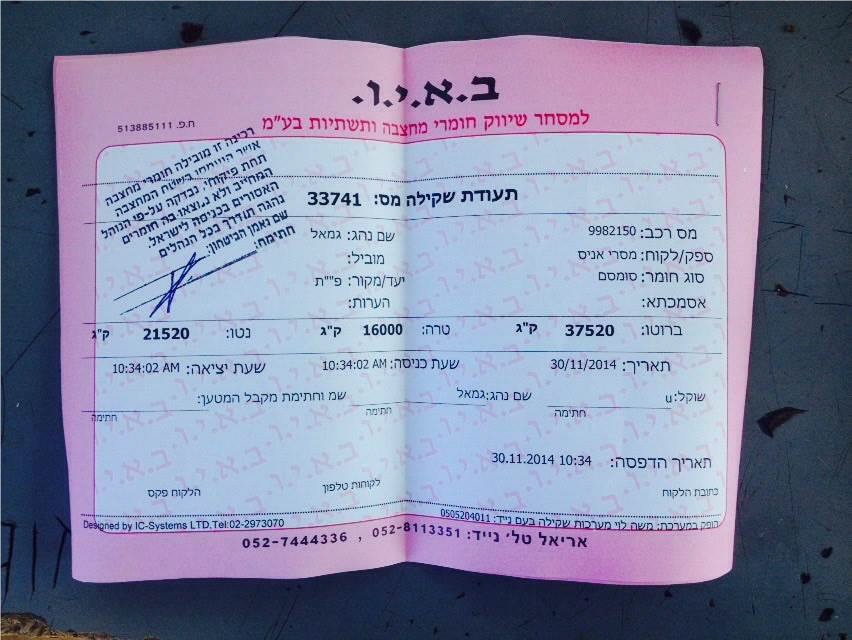 ב.א.י.ו.
למסחר שיווק חומרי מחצבה ותשתיות בע"מ
ח.פ. 513885111
רכינה זו מובילה חומרי מחצבה
אשר הועמסו בשטח המחצבה
תחת פיקוחי, נבדקה על-פי הנוהל
המחייב ולא נמצאו בה חומרים
האסורים בכניסה לישראל.
נהגה תודרך בכל הנהלים
שם נאמן הביטחון:
חתימה:
תעודת שקילה מס: 33741
מס רכב: 9982150
שם נהג: גמאל
ספק/לקוח: מסרי אניס
מוביל:
סוג חומר: סומסם
יעד/מקור: פ""ת
אסמכתא:
הערות:
ברוטו: 37520 ק"ג טרה: 16000 ק"ג נטו: 21520 ק"ג
תאריך: 30/11/2014 שעת כניסה: 10:34:02 AM שעת יציאה: 10:34:02 AM
שוקל: u שם נהג: גמאל שמ וחתימת מקבל המטען:
חתימה חתימה חתימה
תאריך הדפסה: 30.11.2014 10:34
כתובת הלקוח לקוחות טלפון הלקוח פקס
הופק במערכת: משה לוי מערכות שקילה בעם נייד: 0505204011
Designed by IC-Systems LTD,Tel:02-2973070
אריאל טל' נייד: 052-8113351 , 052-7444336